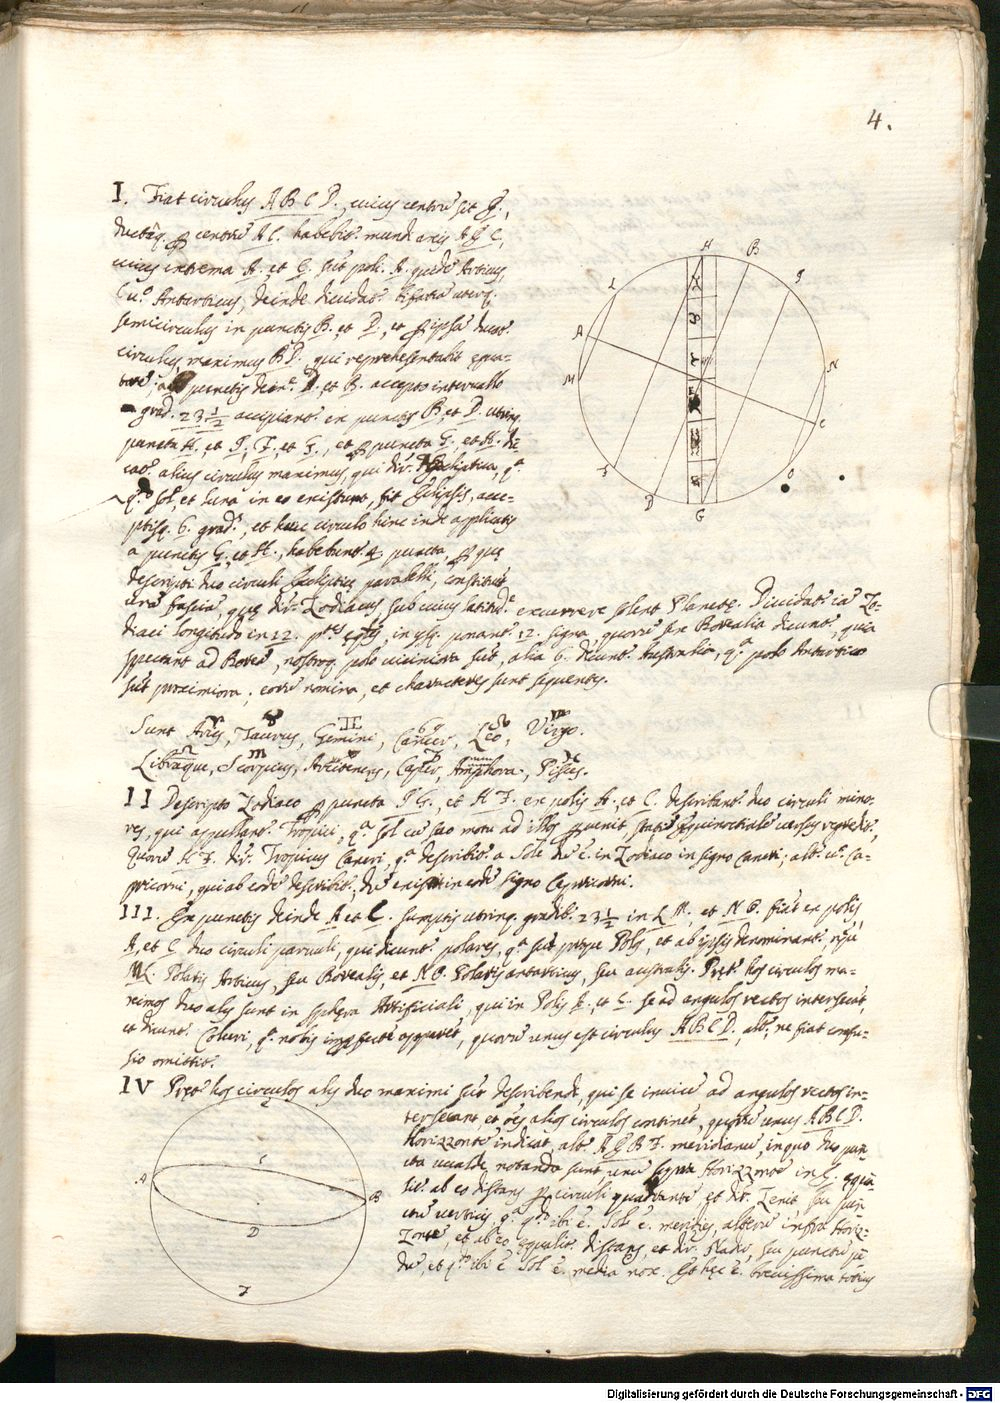 4.
I. Fiat circulus A B C D, cuius centrū sit E.,
ductāq. ꝑ centrū A C. habebit. mundi axis A E C,
cuius extrema A. et C. sūt poli. A. quidē Articus,
C uº. Antarticus, deinde dividat. bifariā uterq.
semicirculus in punctis B. et D., et ꝑ ipsa ducat.
circulus maximus B D. qui reprehesentabit equa-
torē, a punctis dein. D. et B. accepto intervallo
grad. 23 1/2 accipiant. ex punctis B. et D. utrinq.
puncta H. et I., F. et G., et ꝑ puncta G. et H. di-
cat. alius circulus maximus, qui dr. Ecliptica, q.ª
q.º Sol, et luna in eo existunt, fit Eclipsis, acce-
ptisq. 6. grad., et huic circulo hinc inde applicatis
a punctis G. et H., habebunt. 4. puncta, ꝑ quę
descripti duo circuli Eclipticę paralelli, constituūt
unā fasciā, quę dr. Zodiacus, sub cuius latitud.e excurrere solent Planetę. Dividat. iā Zo-
diaci longitudo in 12. p.tes ęq.les, in q.sq. ponant. 12. signa, quorū sex Borealia dicunt., quia
spectant ad Boreā, nostroq. polo viciniora sūt, alia 6. dicunt. Australia, q.ª polo Antartico
sūt proximiora; eorū nomina, et characteres sunt sequentes.
♈ ♉ ♊ ♋ ♌ ♍
Sunt Aries, Taurus, Gemini, Cancer, Leo, Virgo.
♎ ♏ ♐ ♑ ♒ ♓
Libraque, Scorpius, Arcitenens, Caper, Amphora, Pisces.
II Descripto Zodiaco ꝑ puncta I G., et H F. ex polis A. et C. describant. duo circuli mino-
res, qui appellant. Tropici, q.ª Sol cū suo motu ad illos ꝑvenit, statī Equinoctialē versus regredit.,
Quorū H F. dr. Tropicus Cancri, q.ª describit. a Sole dū ē. in Zodiaco in signo Cancri; alt. u. Ca-
pricorni, qui ab eodē describit., dū existit in eodē signo Capricorni.
III. Ex punctis deinde A et C. sumptis utrinq. gradib. 23 1/2 in L M. et N O. fiāt ex polis
A. et C. duo circuli parvuli, qui dicunt. polares, q.ª sūt prope Polos, et ab ipsis denominant.
ML. Polaris Articus, seu Borealis, et N O. Polaris antarticus, seu australis. Pręt. hos circulos ma-
ximos duo alij sunt in sphęra Artificiali, qui in Polis A. et C. se ad angulos rectos intersecāt,
et dicunt. Coluri, q. nobis imꝑfecte apparēt, quorū unus est circulus A B C D, alt. ne fiat confu-
sio omittit.
IV Pręt. hos circulos alij duo maximi sūt describendi, qui se invicē ad angulos rectos in-
tersecant, et oēs alios circulos continēt, quorū unus A B C D.
Horizzontē indicat, alt. A E B F. meridianū, in quo duo pun-
cta valde notanda sunt, unū supra Horizzontē in E. equa
lit. ab eo distans ꝑ circuli quadrantē, et dr. Zenit, seu pun-
ctū verticis, q.ª q.do ibi ē. Sol ē. meridies, alterū infra Horiz-
zontē, et ab eo equalit. distans, et dr. Nadir, seu punctū pe
dū, et q.do ibi ē Sol ē. media nox. Et hęc ē. brevissima totius
H B I N C O G D F M A L
E A C B D F
Digitalisierung gefördert durch die Deutsche Forschungsgemeinschaft - DFG